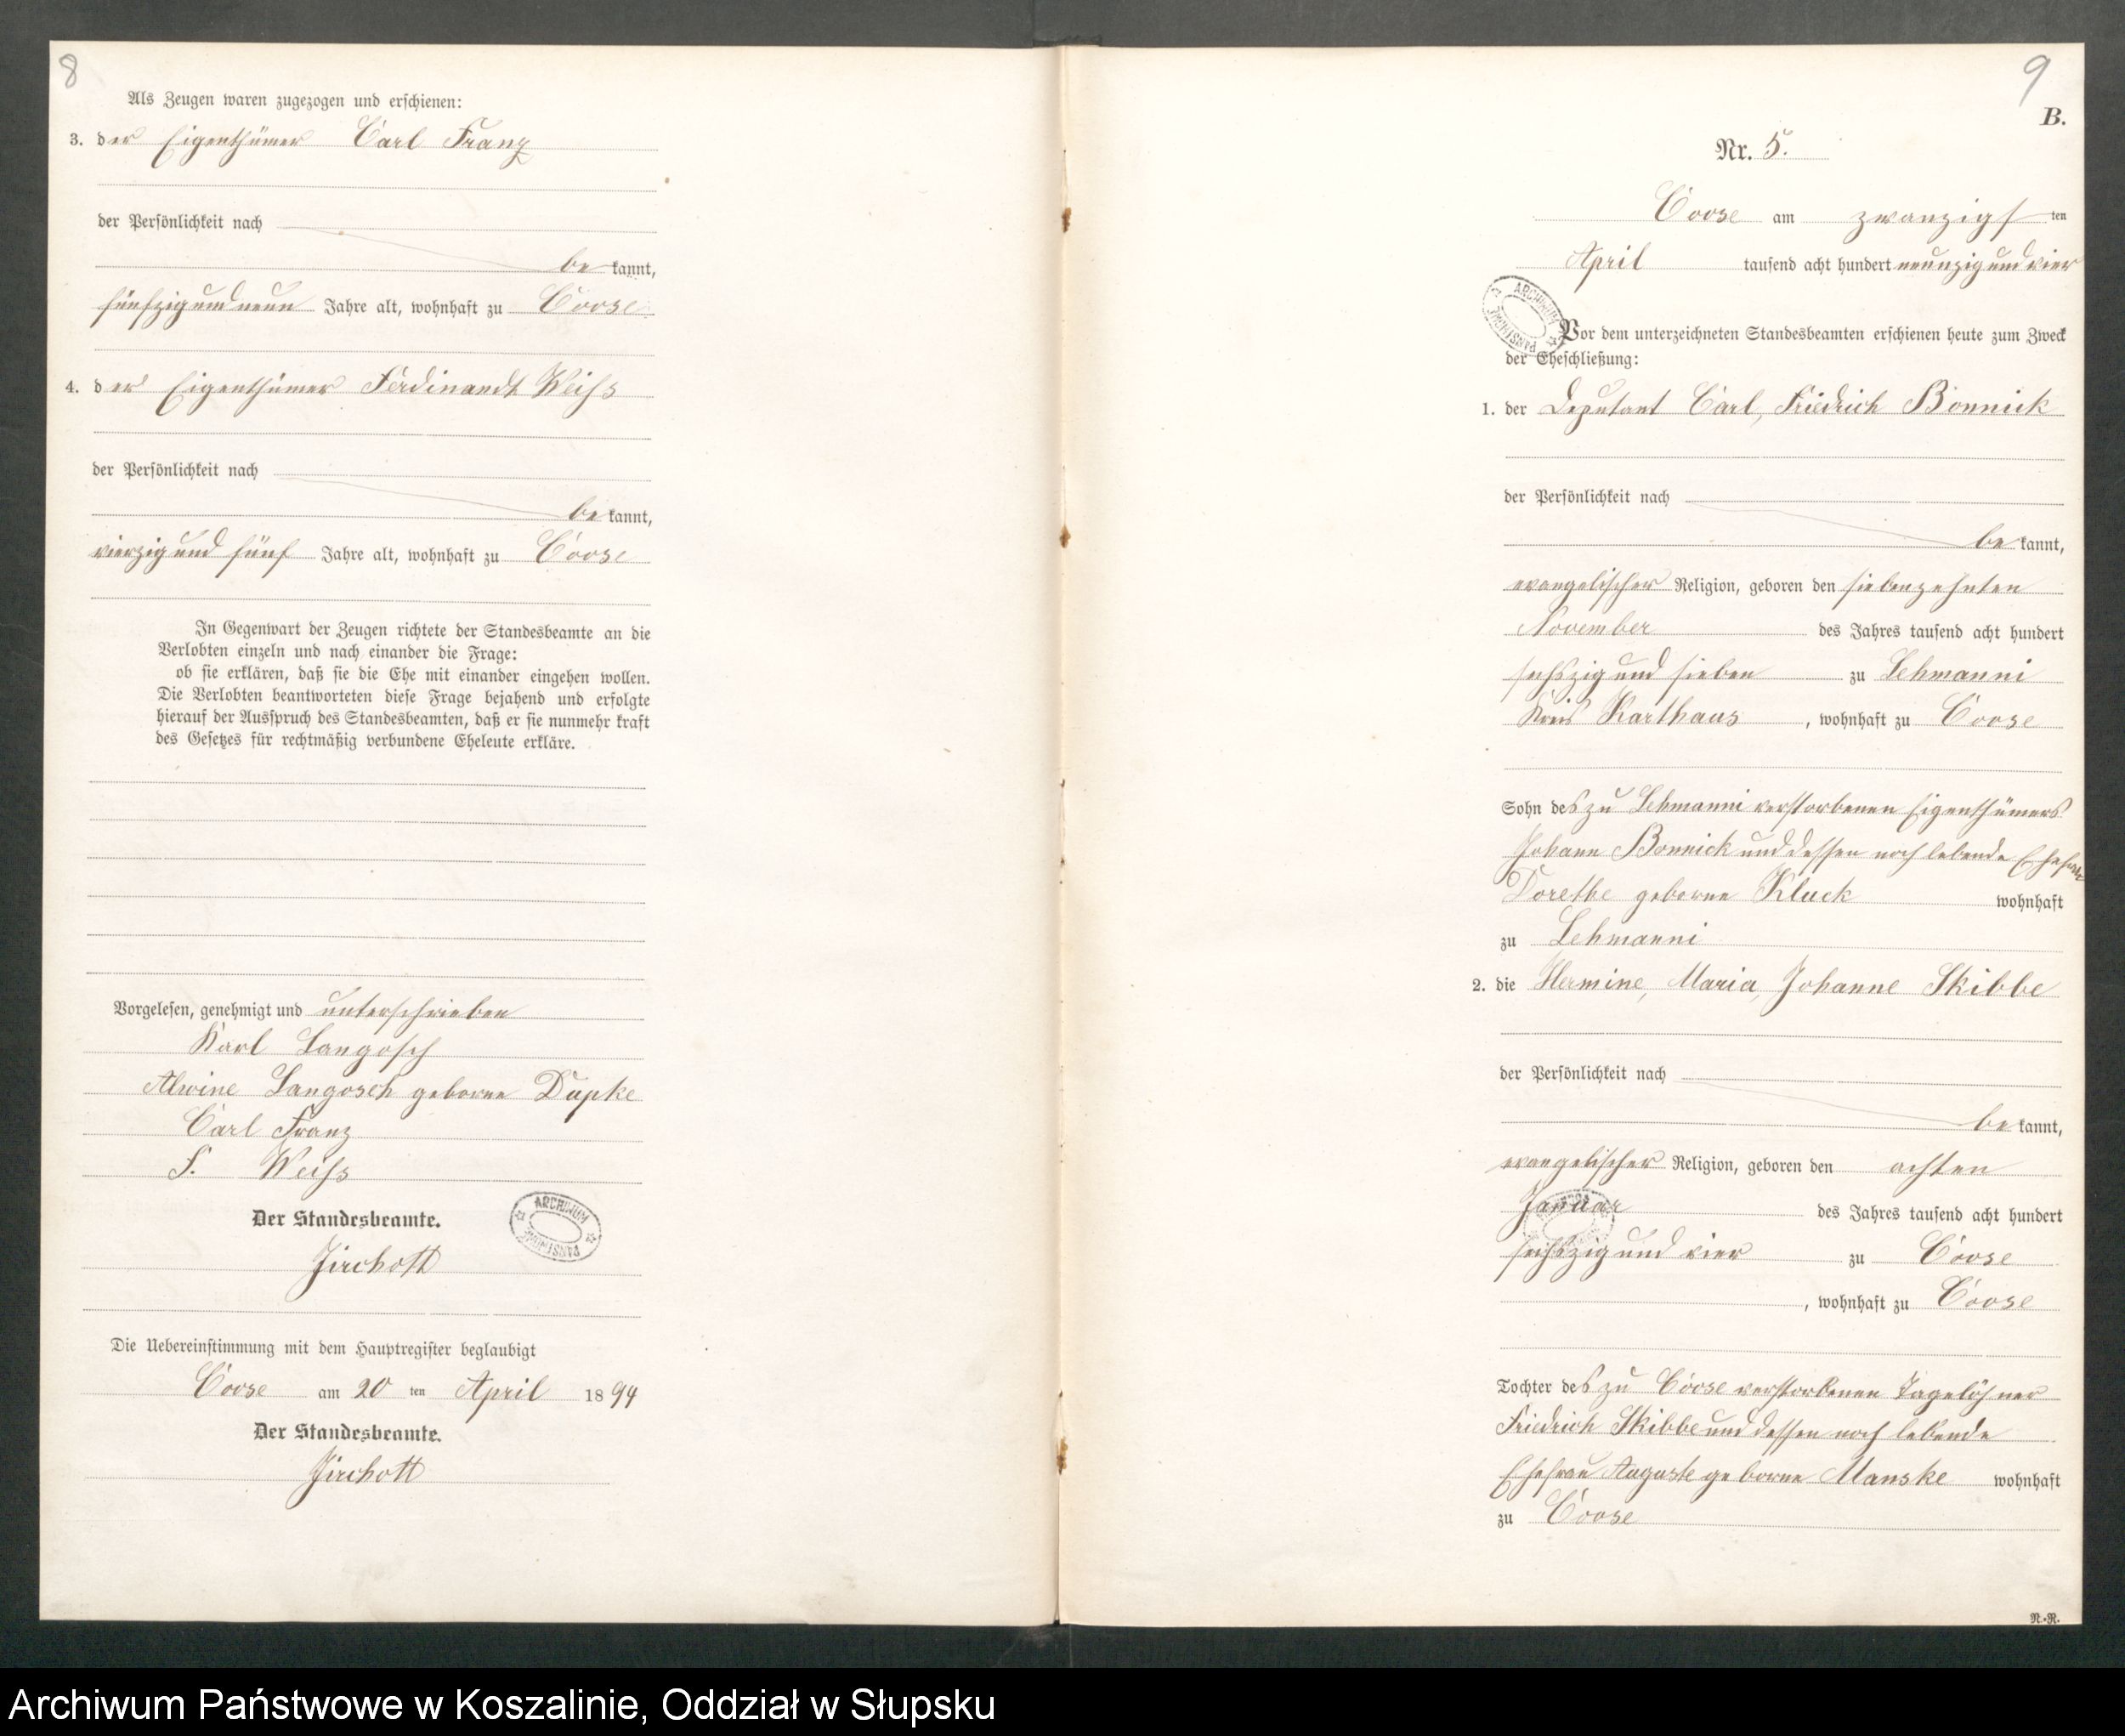 8
Als Zeugen waren zugezogen und erschienen:
3. der Eigenthümer Carl Franz
der Persönlichkeit nach
be kannt,
fünfzig und neun Jahre alt, wohnhaft zu Coose
4. der Eigenthümer Ferdinandt Weiß
der Persönlichkeit nach
be kannt,
vierzig und fünf Jahre alt, wohnhaft zu Coose
In Gegenwart der Zeugen richtete der Standesbeamte an die
Verlobten einzeln und nach einander die Frage:
ob sie erklären, daß sie die Ehe mit einander eingehen wollen.
Die Verlobten beantworteten diese Frage bejahend und erfolgte
hierauf der Ausspruch des Standesbeamten, daß er sie nunmehr kraft
des Gesetzes für rechtmäßig verbundene Eheleute erkläre.
Vorgelesen, genehmigt und unterschrieben
Karl Langosch
Alwine Langosch geborne Dupke
Carl Franz
F. Weiß
Der Standesbeamte.
Jirchott
Die Uebereinstimmung mit dem Hauptregister beglaubigt
Coose am 20 ten April 1894
Der Standesbeamte.
Jirchott
9
B.
Nr. 5.
Coose am zwanzigs ten
April tausend acht hundert neunzig und vier
Vor dem unterzeichneten Standesbeamten erschienen heute zum Zweck
der Eheschließung:
1. der Deputant Carl, Friedrich Bonnick
der Persönlichkeit nach
be kannt,
evangelischer Religion, geboren den siebenzehnten
November des Jahres tausend acht hundert
sechszig und sieben zu Lehmanni
Kreis Karthaus, wohnhaft zu Coose
Sohn des zu Lehmanni verstorbenen Eigenthümers
Johann Bonnick und dessen noch lebende Ehefrau
Dorethe geborne Kluck wohnhaft
zu Lehmanni
2. die Hermine, Maria, Johanne Skibbe
der Persönlichkeit nach
be kannt,
evangelischer Religion, geboren den achten
Januar des Jahres tausend acht hundert
sechszig und vier zu Coose
, wohnhaft zu Coose
Tochter des zu Coose verstorbenen Tagelöhner
Friedrich Skibbe und dessen noch lebende
Ehefrau Auguste geborne Manske wohnhaft
zu Coose
N.-R.
Archiwum Państwowe w Koszalinie, Oddział w Słupsku